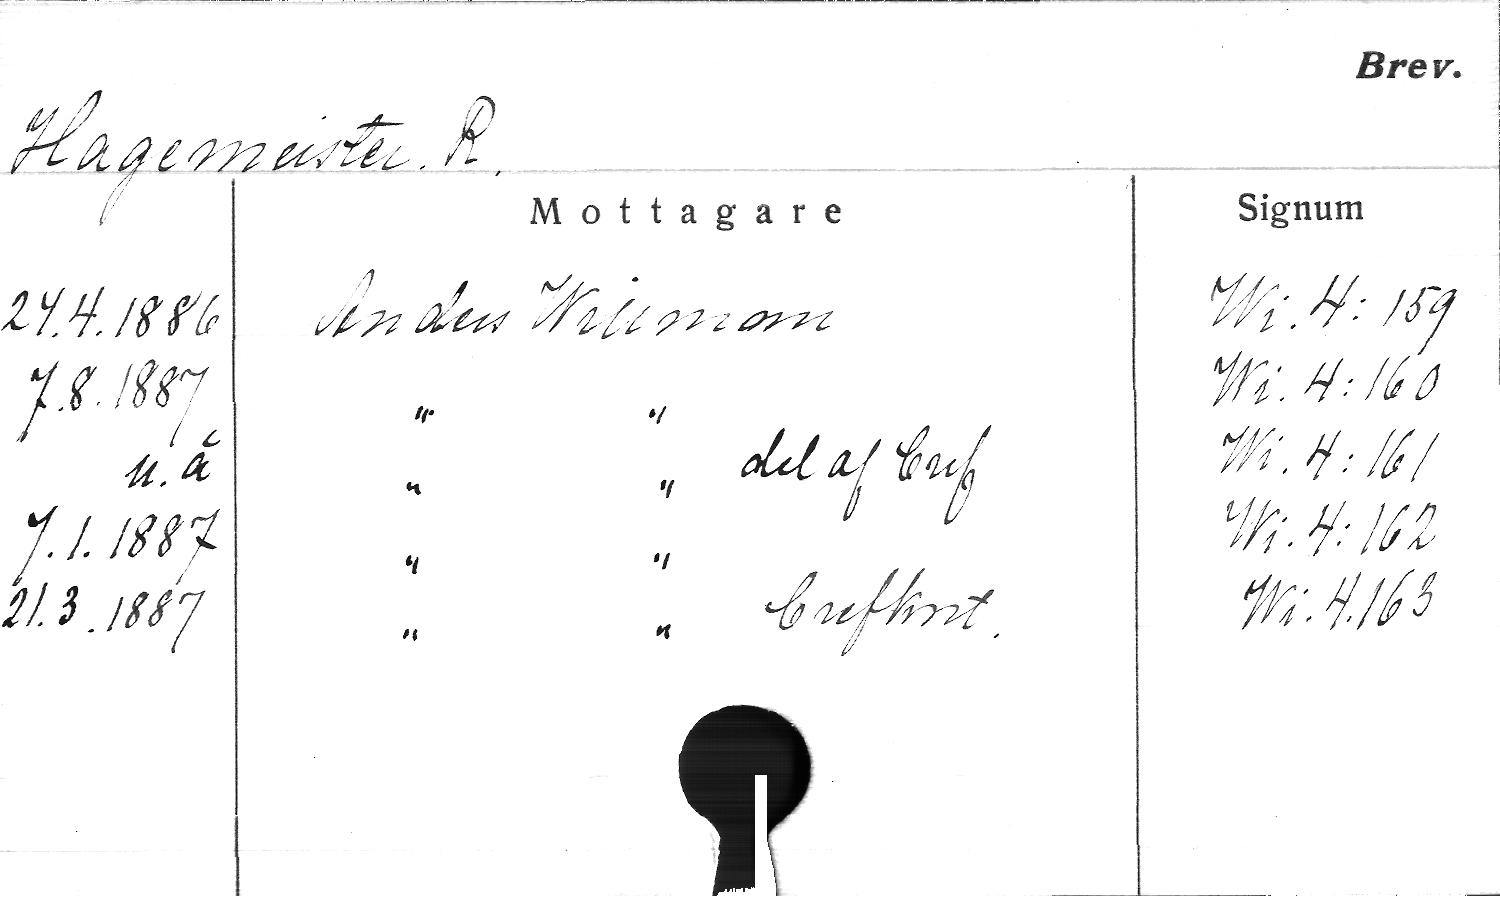 Brev.
Hagemeister. R.
Mottagare Signum
27.4.1886 Anders Willman Wi. 4: 159
7.8.1887 " " Wi. 4: 160
u. å " " del af bref Wi. 4: 161
7.1.1887 " " Wi. 4: 162
21.3.1887 " " Brefkort. Wi. 4.163